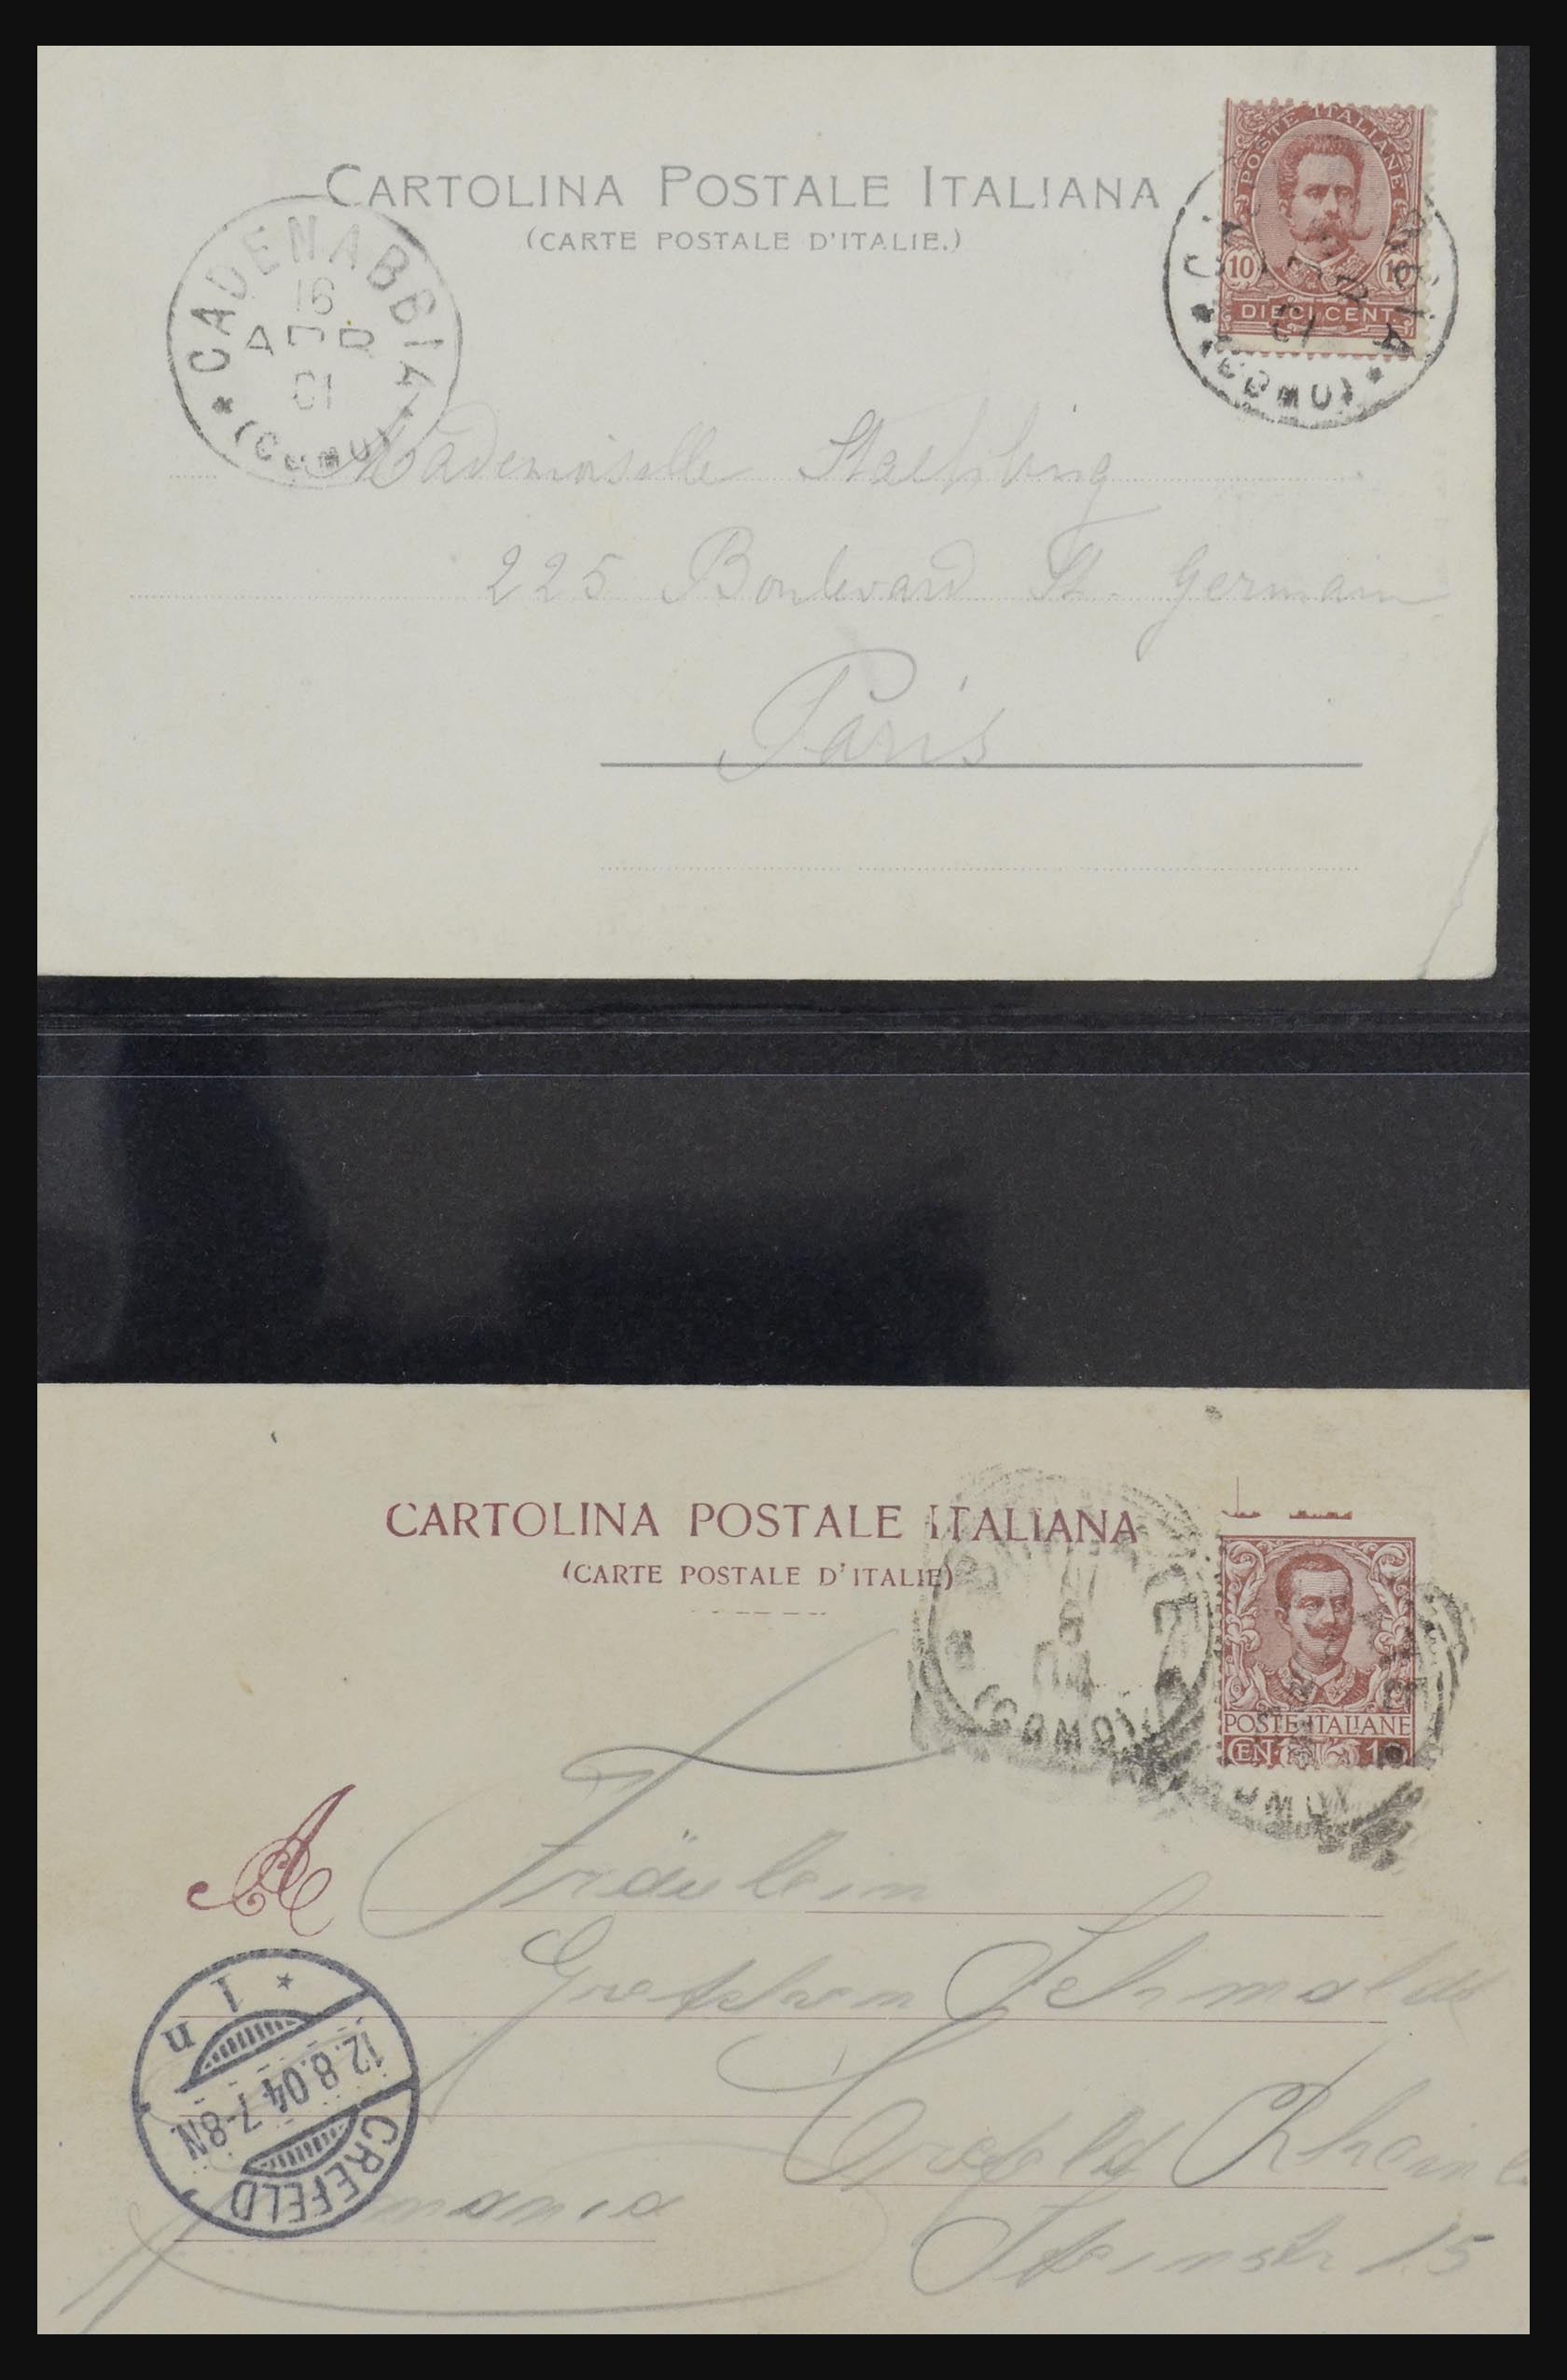 CARTOLINA POSTALE ITALIANA
(CARTE POSTALE D'ITALIE.)
POSTE ITALIANE
10 10
DIECI CENT.
CADENABBIA
16
APR
01
(COMO)
(COMO)
Mademoiselle
225 Boulevard St. Germain
Paris
CARTOLINA POSTALE ITALIANA
(CARTE POSTALE D'ITALIE)
POSTE ITALIANE
CEN. 10
(COMO)
A
Fräulein
Gretchen
Crefeld
Steinstr 15
1 n
12.8.04.7-8N
CREFELD